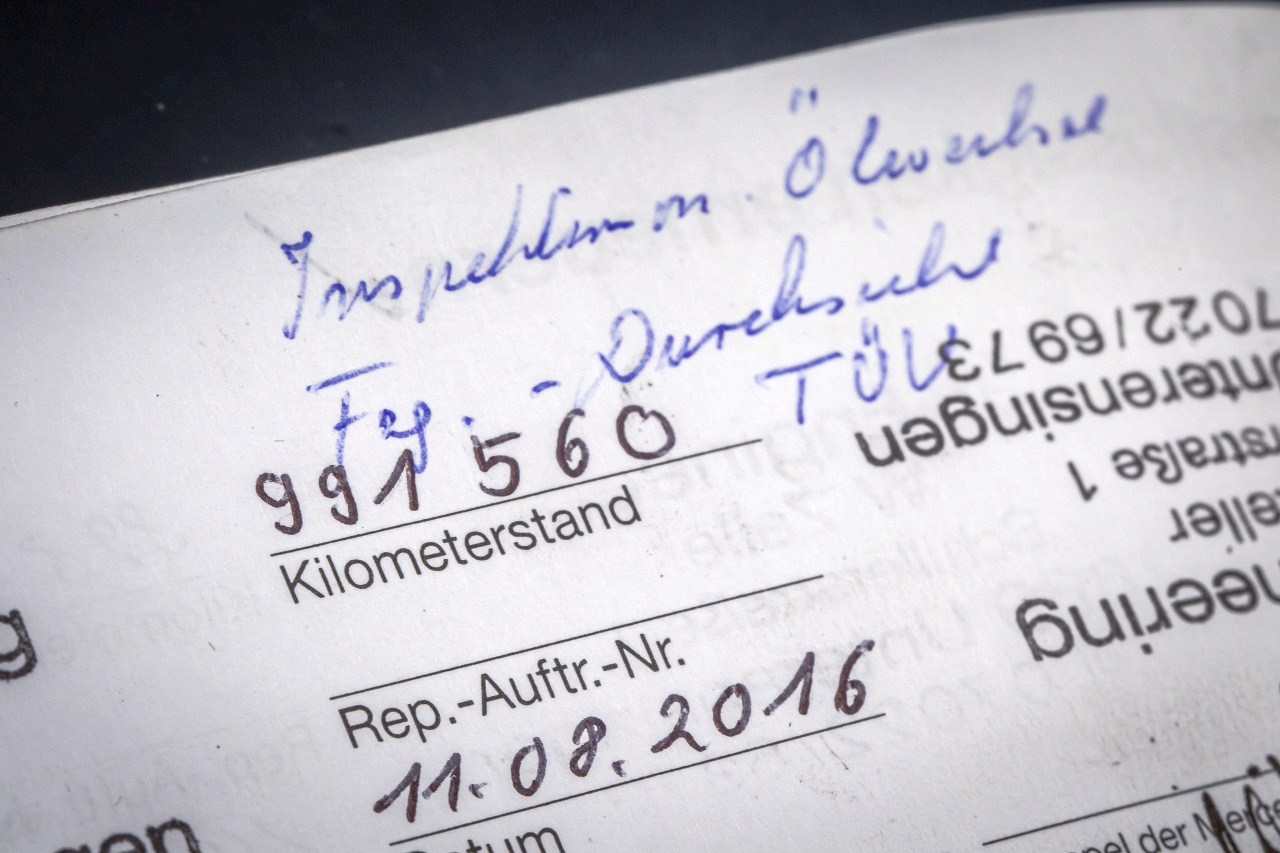 Inspektion. Ölwechsel
Fzg. - Durchsicht
TÜV
991 560
Kilometerstand
Rep.-Auftr.-Nr.
11.08.2016
Datum
neering
eller
rstraße 1
Unterensingen
7022/6973
g
gen
pel der Merce